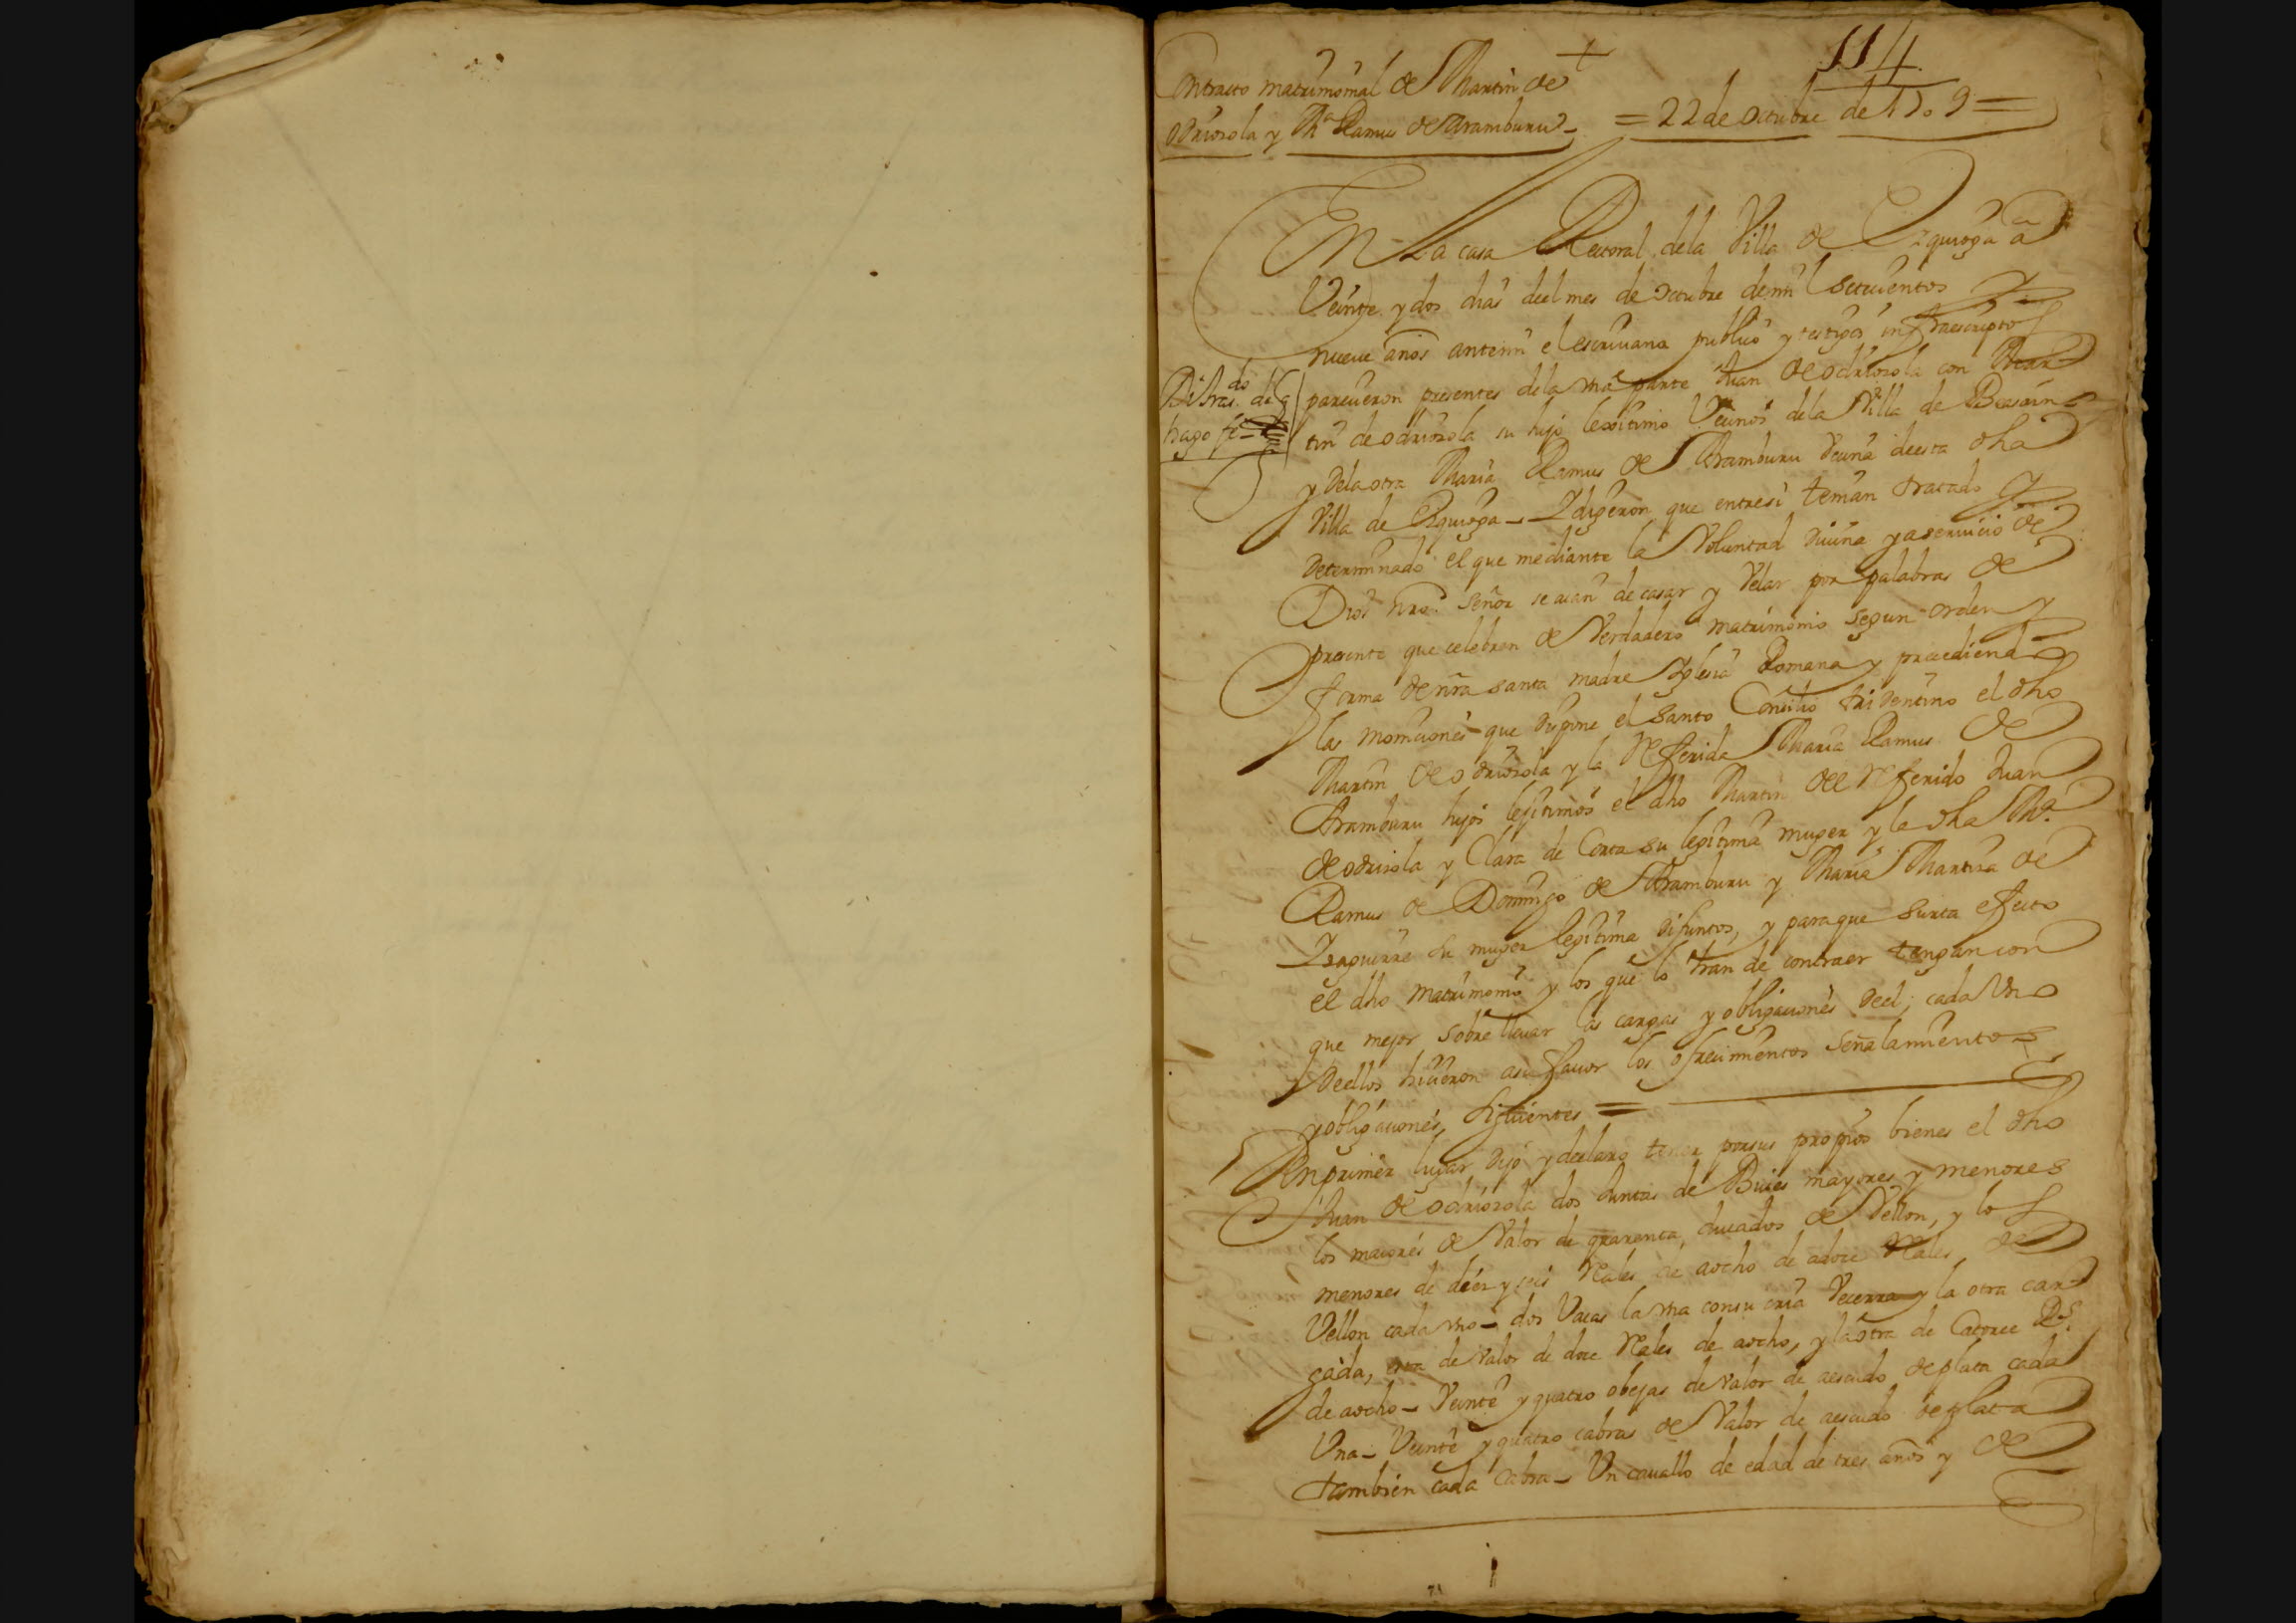 114
Contracto matrimonial de Martin de
Odriozola y Mª Ramus de Aramburu
= 22 de octubre de 1709 =
En La casa Rectoral dela Villa de Ezquioga â
Veinte y dos dias deel mes de octubre demil setecientos y
nueve años antemi el escriuano publico y testigos infraescriptos
parecieron presentes dela vna parte Juan de odriozola con Mar
tin de odriozola su hijo lexitimo Vecinos dela Villa de Beasain
y dela otra Maria Ramus de Aramburu Vecina deesta dha
Villa de Ezquioga - Y digeron que entresi tenian tratado y
determinado el que mediante la Voluntad Diuina y a seruicio de
Dios nro. señor se aian de casar y Velar por palabras de
presente que celebren de Verdadero matrimonio segun orden y
forma de nra santa madre Yglesia Romana y precediendo
las moniciones que dispone el santo Concilio tridentino el dho
Martin de odriozola y la Referida Maria Ramus de
Aramburu hijos lejitimos el dho Martin del Referido Juan
de odriozola y Clara de Corta su legitima muger y la dha Mª.
Ramus de Domingo de Aramburu y Maria Martina de
Yzaguirre su muger legitima difuntos, y paraque surta efecto
el dho matrimonio y los que lo han de contraer tengan con
que mejor sobrelleuar las cargas y obligaciones deel, cada vno
deellos hicieron asu fauor los ofrecimientos señalamientos
y obligaciones siguientes =
En primer lugar dijo y declaro tener porsus propios bienes el dho
Juan de odriozola dos Juntas de Buies mayores y menores
los maiores de Valor de quarenta ducados de Vellon, y los
menores de diez y seis Reales de aocho de adoce Reales de
Vellon cada vno - dos Vacas la vna consu cria Vecerra y la otra car
gada, esta de valor de doce Reales de aocho, y la otra de Catorce Rs.
de aocho - Veinte y quatro obejas de valor de aescudo de plata cada
Vna - Veinte y quatro cabras de Valor de aescudo de plata
tambien cada cabra - Un cauallo de edad de tres años y de
do
hago fe